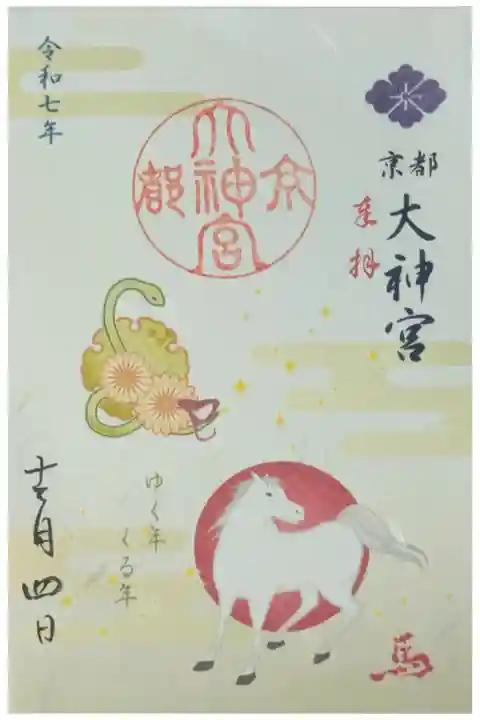 京都
大神宮
奉拝
京都大神宮
令和七年
ゆく年
くる年
十二月四日
馬